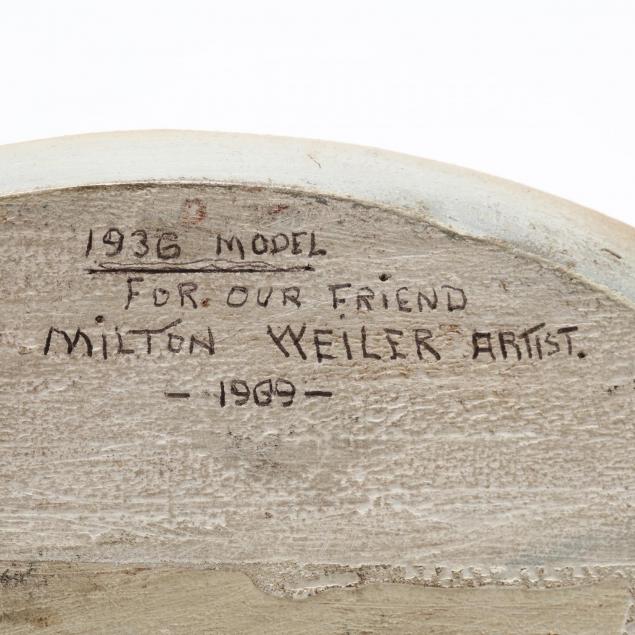 1936 MODEL
FOR OUR FRIEND
MILTON WEILER ARTIST.
- 1969 -